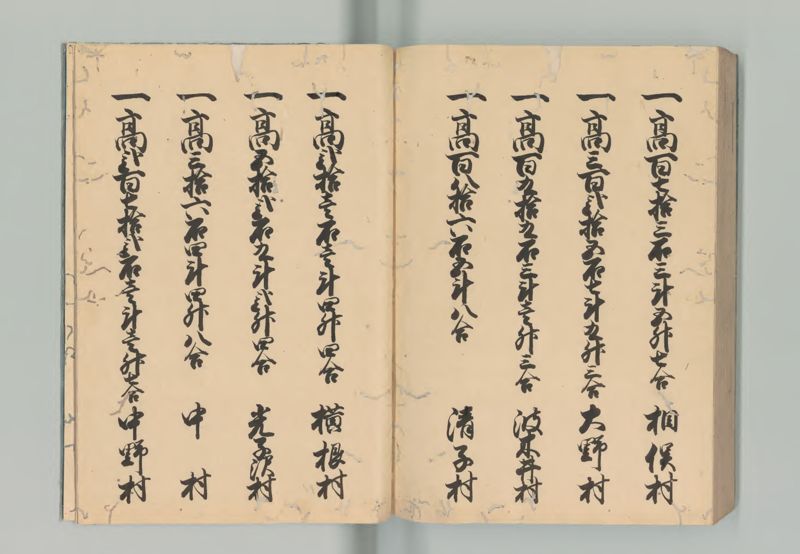 一高百七拾三石三斗五升七合 相俣村
一高三百弐拾五石七斗九升三合 大野村
一高百九拾九石三斗壱升三合 波木井村
一高百八拾六石五斗八合 清子村
一高弐拾壱石壱斗四升四合 横根村
一高五拾弐石九斗弐升四合 光子沢村
一高三拾六石四斗四升八合 中村
一高弐百七拾弐石壱斗壱升七合 中野村